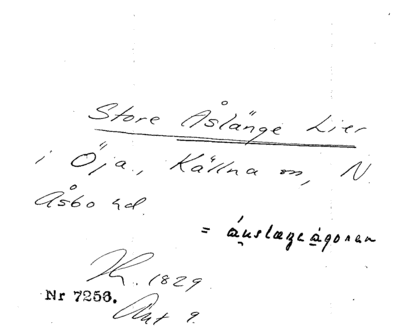 Store Åslänge Lier
i Öja, Källna sn, N.
Åsbo hd.
= áuslægeágoran
Kr. 1829
Nr 7256.
Akt 9.